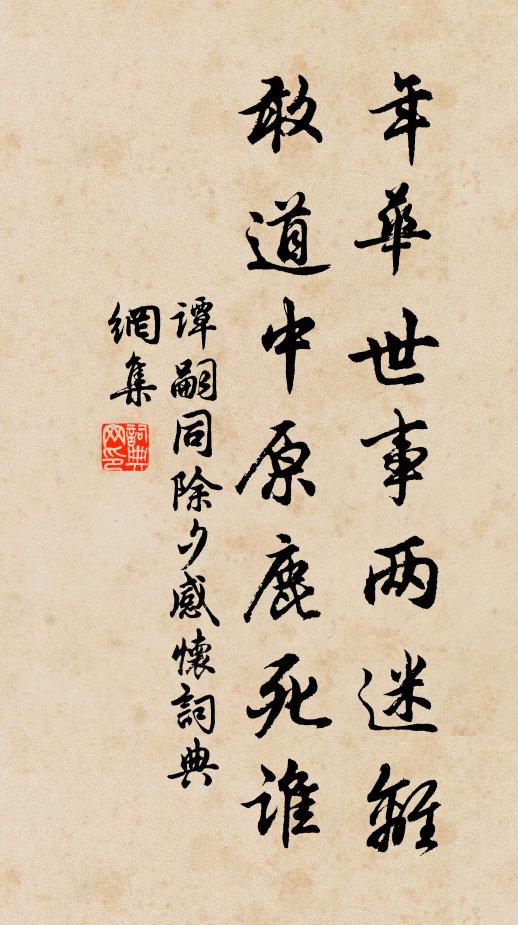 年華世事两迷離
敢道中原鹿死誰
谭嗣同除夕感懷詞典
網集
詞典
网印